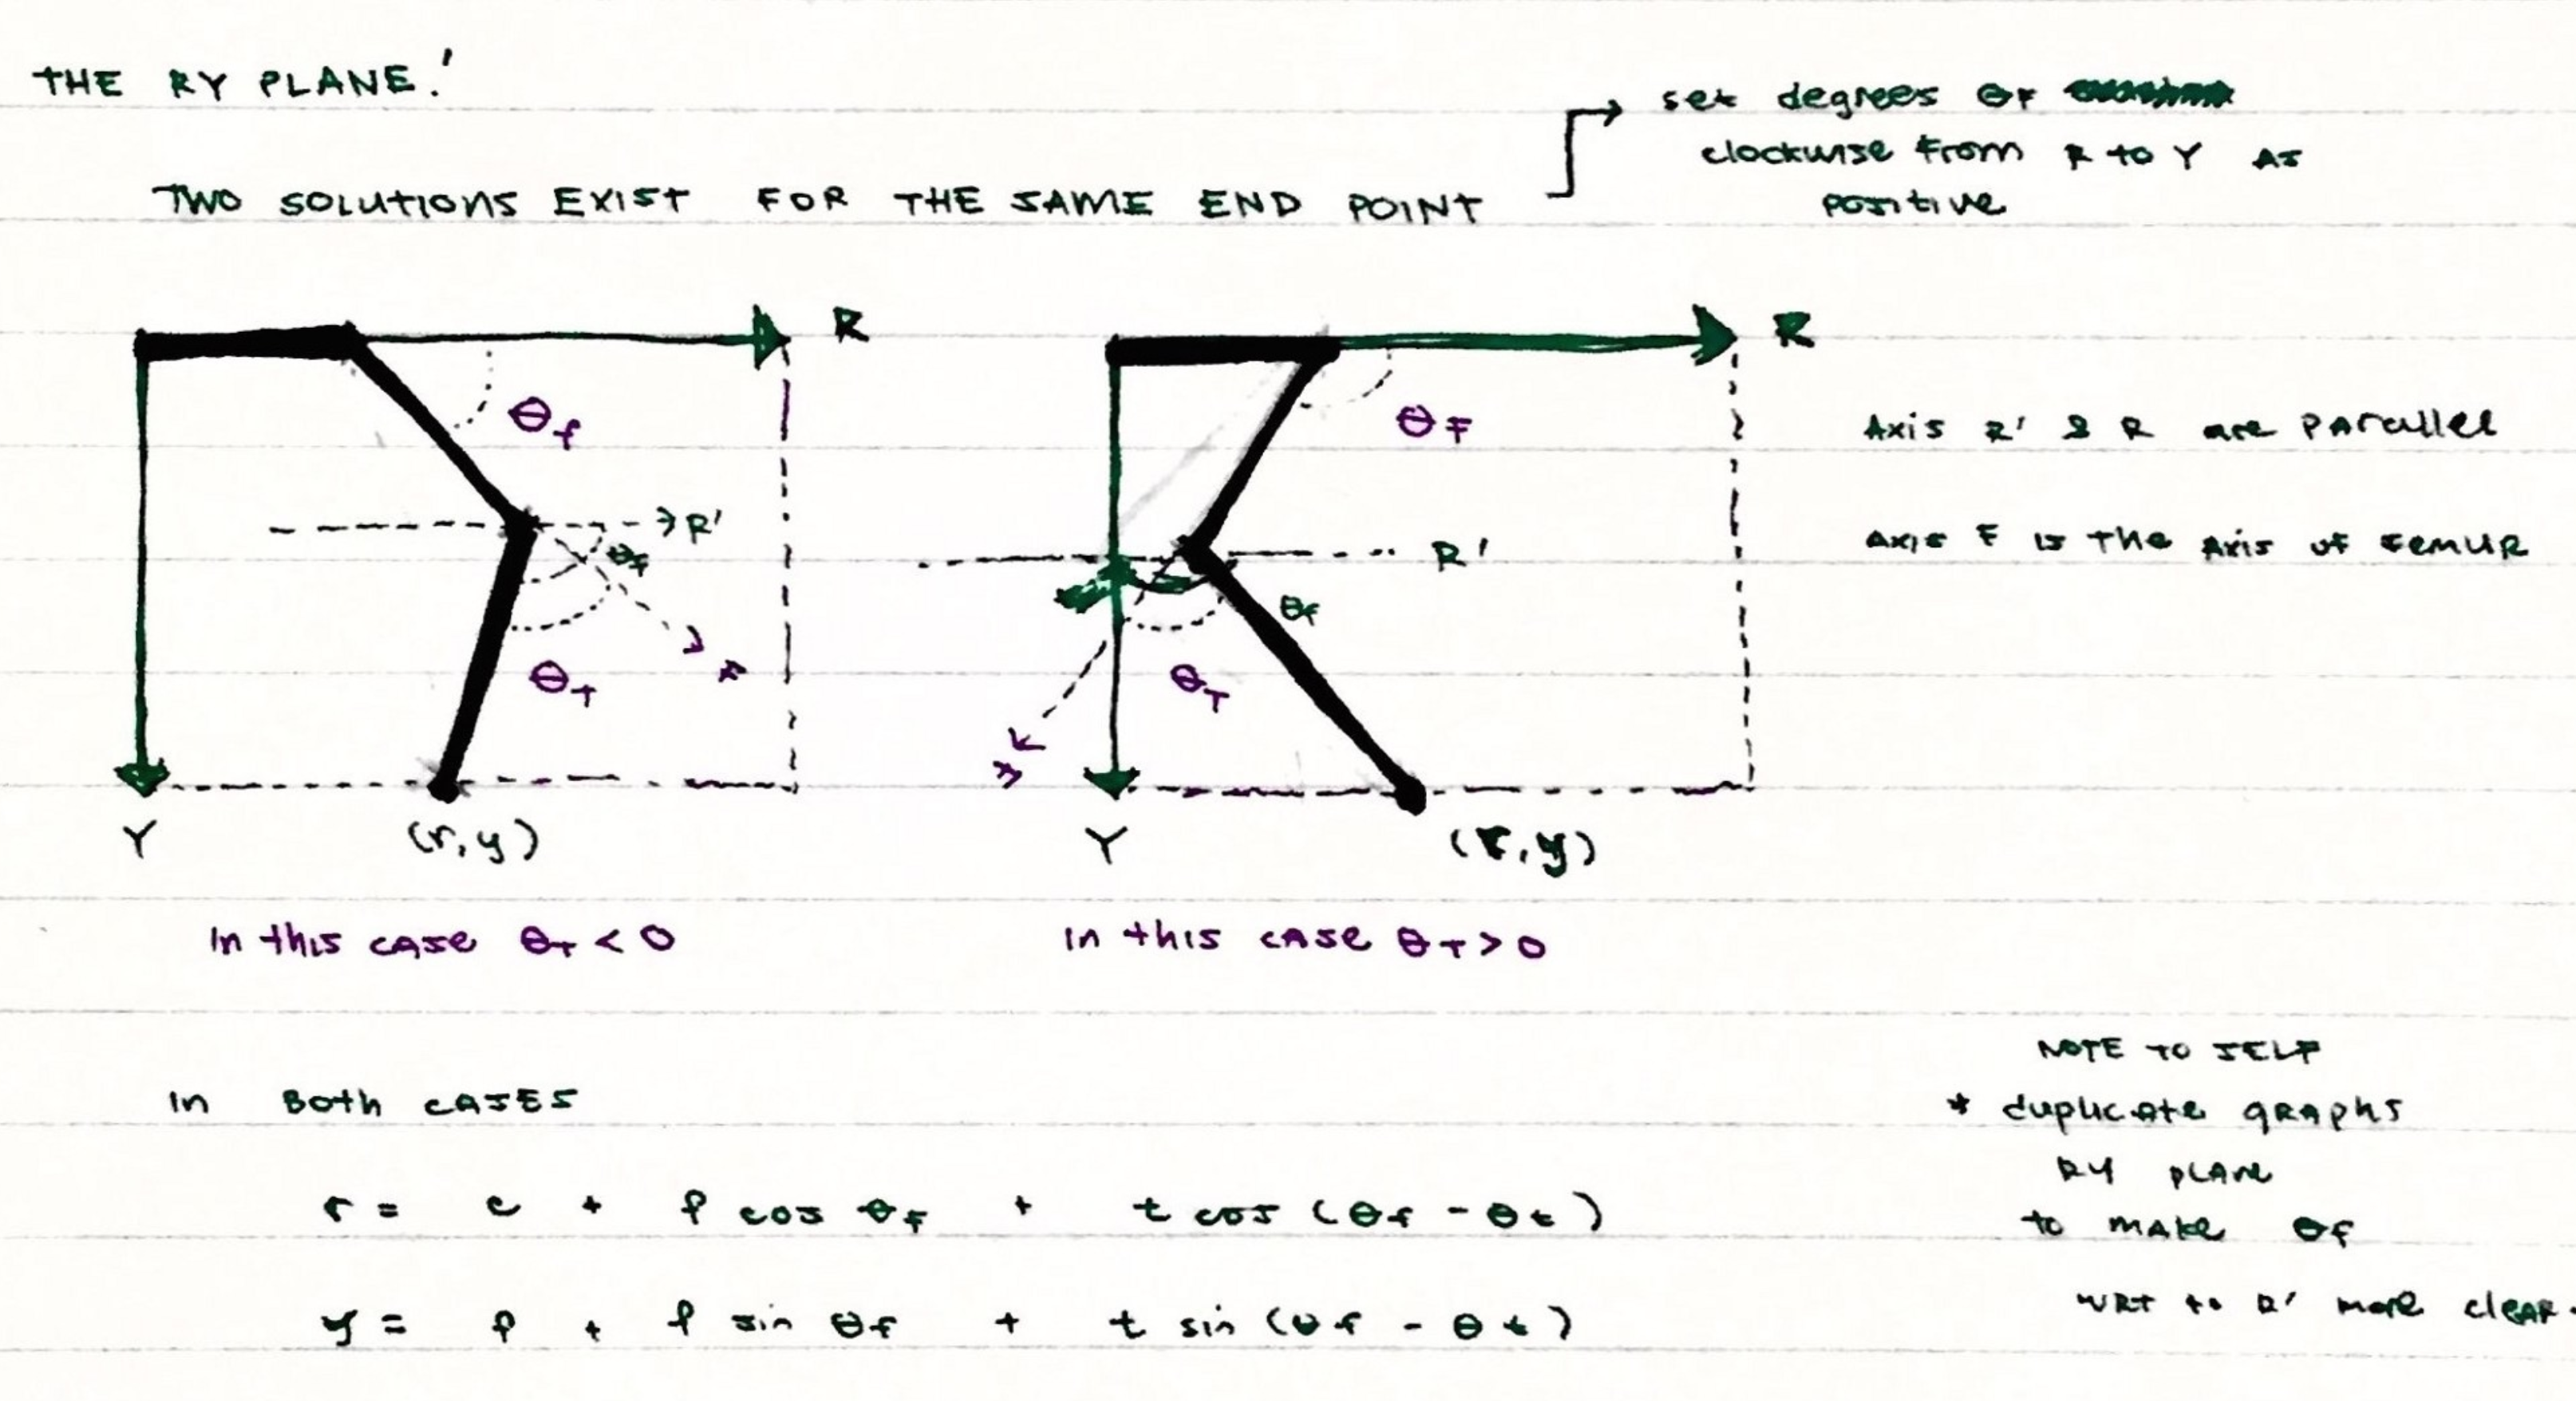 THE RY PLANE!
TWO SOLUTIONS EXIST FOR THE SAME END POINT
set degrees θF
clockwise from R to Y as
positive
R
θf
R'
θf
F
θT
Y
(r,y)
R
θF
R'
θf
θT
Y
(r,y)
Axis R' & R are parallel
Axis F is the Axis of femur
In this case θT < 0
In this case θT > 0
In Both cases
r = c + f cos θf + t cos (θf - θt)
y = f + f sin θf + t sin (θf - θt)
NOTE TO SELF
* duplicate graphs
RY plane
to make θf
WRT to R' more clear.